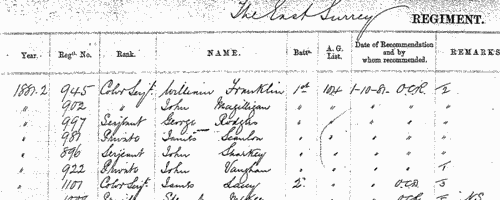 The East Surrey REGIMENT.
Year. Regtl. No. Rank. NAME. Batn. A. G. List. Date of Recommendation and by whom recommended. REMARKS
1881-2 945 Color Serjt. William Franklin 1st 104 1-10-81 O.C.R. 2
" 902 " John Magilligan " " " "
" 997 Serjeant George Rodgers " " " "
" 987 Private James Scanlon " " " "
" 896 Serjeant John Sharkey " " " "
" 922 Private John Vaughan " " " "
" 1101 Color Serjt. James Lacey 2. " " O.C.R.